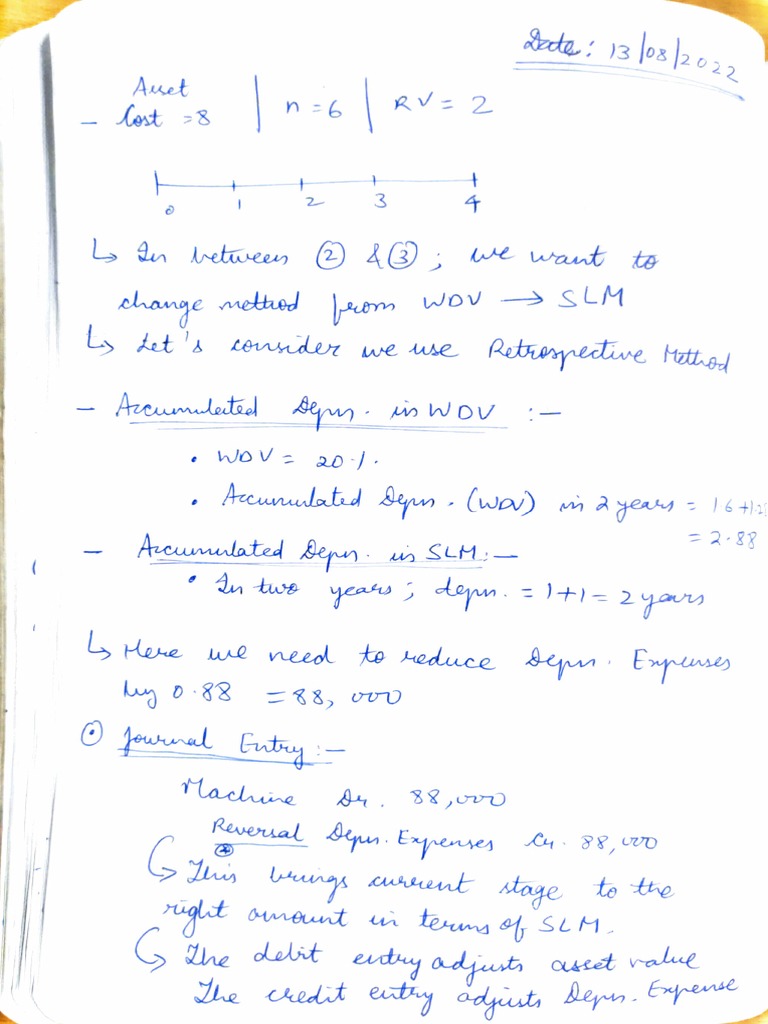 Date: 13/08/2022
Asset
- Cost = 8 | n = 6 | RV = 2
0 1 2 3 4
↳ In between ② & ③ ; we want to
change method from WDV → SLM
↳ Let's consider we use Retrospective Method
- Accumulated Depn. in WDV :-
• WDV = 20%.
• Accumulated Depn. (WDV) in 2 years = 1.6+1.28
= 2.88
- Accumulated Depn. in SLM :-
• In two years ; depn. = 1+1 = 2 years
↳ Here we need to reduce Depn. Expenses
by 0.88 = 88,000
⊙ Journal Entry :-
Machine Dr. 88,000
Reversal Depn. Expenses Cr. 88,000
↳ This brings current stage to the
right amount in terms of SLM.
↳ The debit entry adjusts asset value
The credit entry adjusts Depn. Expense